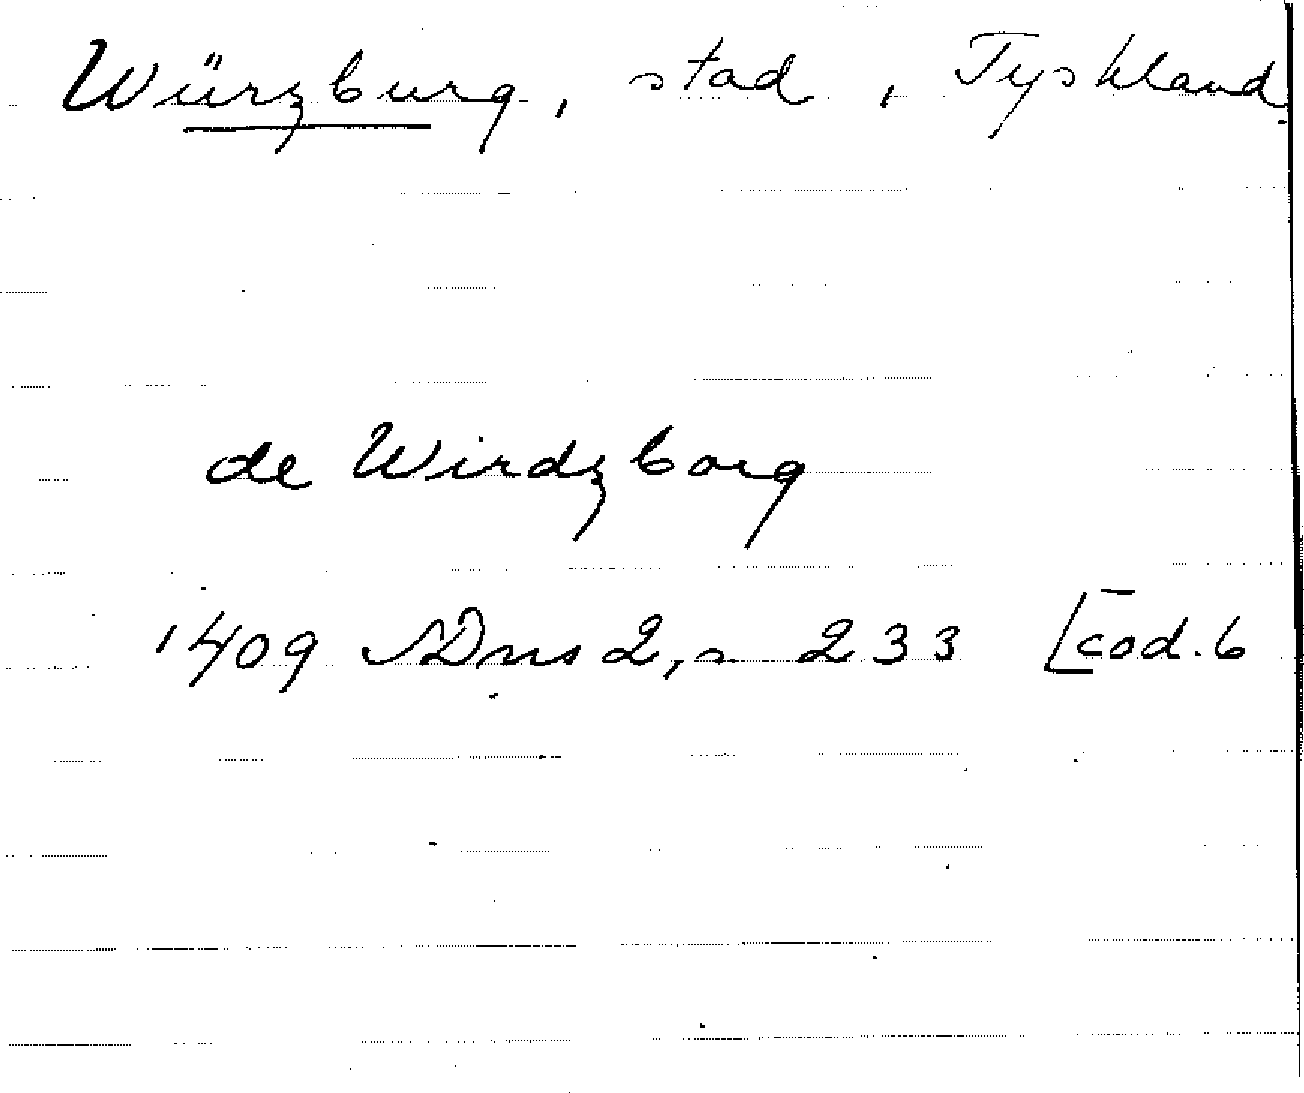 Würzburg, stad, Tyskland
de Wirdzborg
1409 SDns 2, s 233 [cod. 6